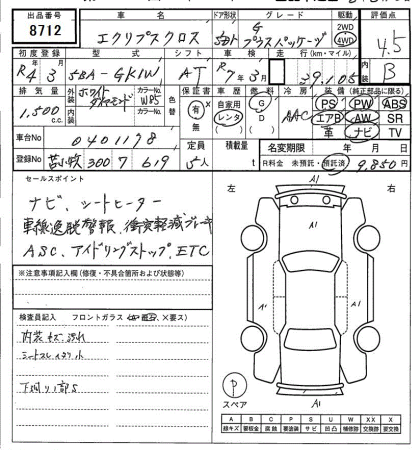 出品番号 車名 ドア形状 グレード 駆動 評価点
8712 エクリプスクロス G プラスパッケージ 2WD 4WD 4.5
初度登録 型式 シフト 車検 走行(km・マイル) 内装
R4 3 5BA-GK1W AT R7年3月 39,105 B
排気量 外装色 ホワイトダイヤモンド カラーNo. W85 色替 カラーNo. 保証書 車歴 燃料 冷房 装備(純正部品に限る)
1,500 c.c. 有・無 自家用 レンタ G D AAC PS PW ABS
エアB AW SR
革 ナビ TV
車台No 0401178 定員 5人 積載量 t 名変期限 年 月 日
登録No 苫小牧 300 フ 619 R料金 未預託・預託済 9,850円
セールスポイント
ナビ、シートヒーター
車線逸脱警報、衝突軽減ブレーキ
ASC、アイドリングストップ、ETC
※注意事項記入欄(修復・不具合箇所および状態等)
検査員記入 フロントガラス
内装キズ、汚れ
下廻り
左 右
A1
A1
A1
A1
P
スペア
A B C P S U W X XX
超キズ 要板金 腐蝕 要塗装 サビ 凹凸 補修跡 交換跡 要交換